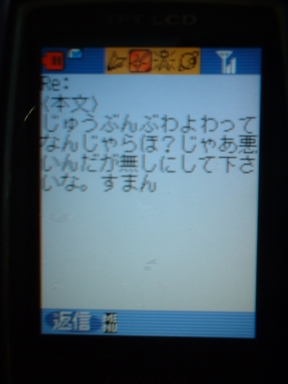 TFT-LCD
Re:
〈本文〉
じゅうぶんぶわよわって
なんじゃらほ?じゃあ悪
いんだが無しにして下さ
いな。すまん
返信 MENU